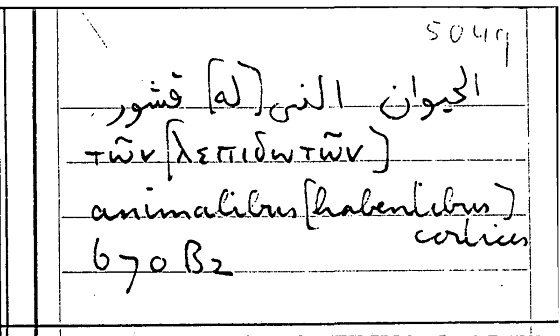 5049
الحيوان التى [له] قشور
τῶν [λεπιδωτῶν]
animalibus [habentibus]
cortices
670 B2